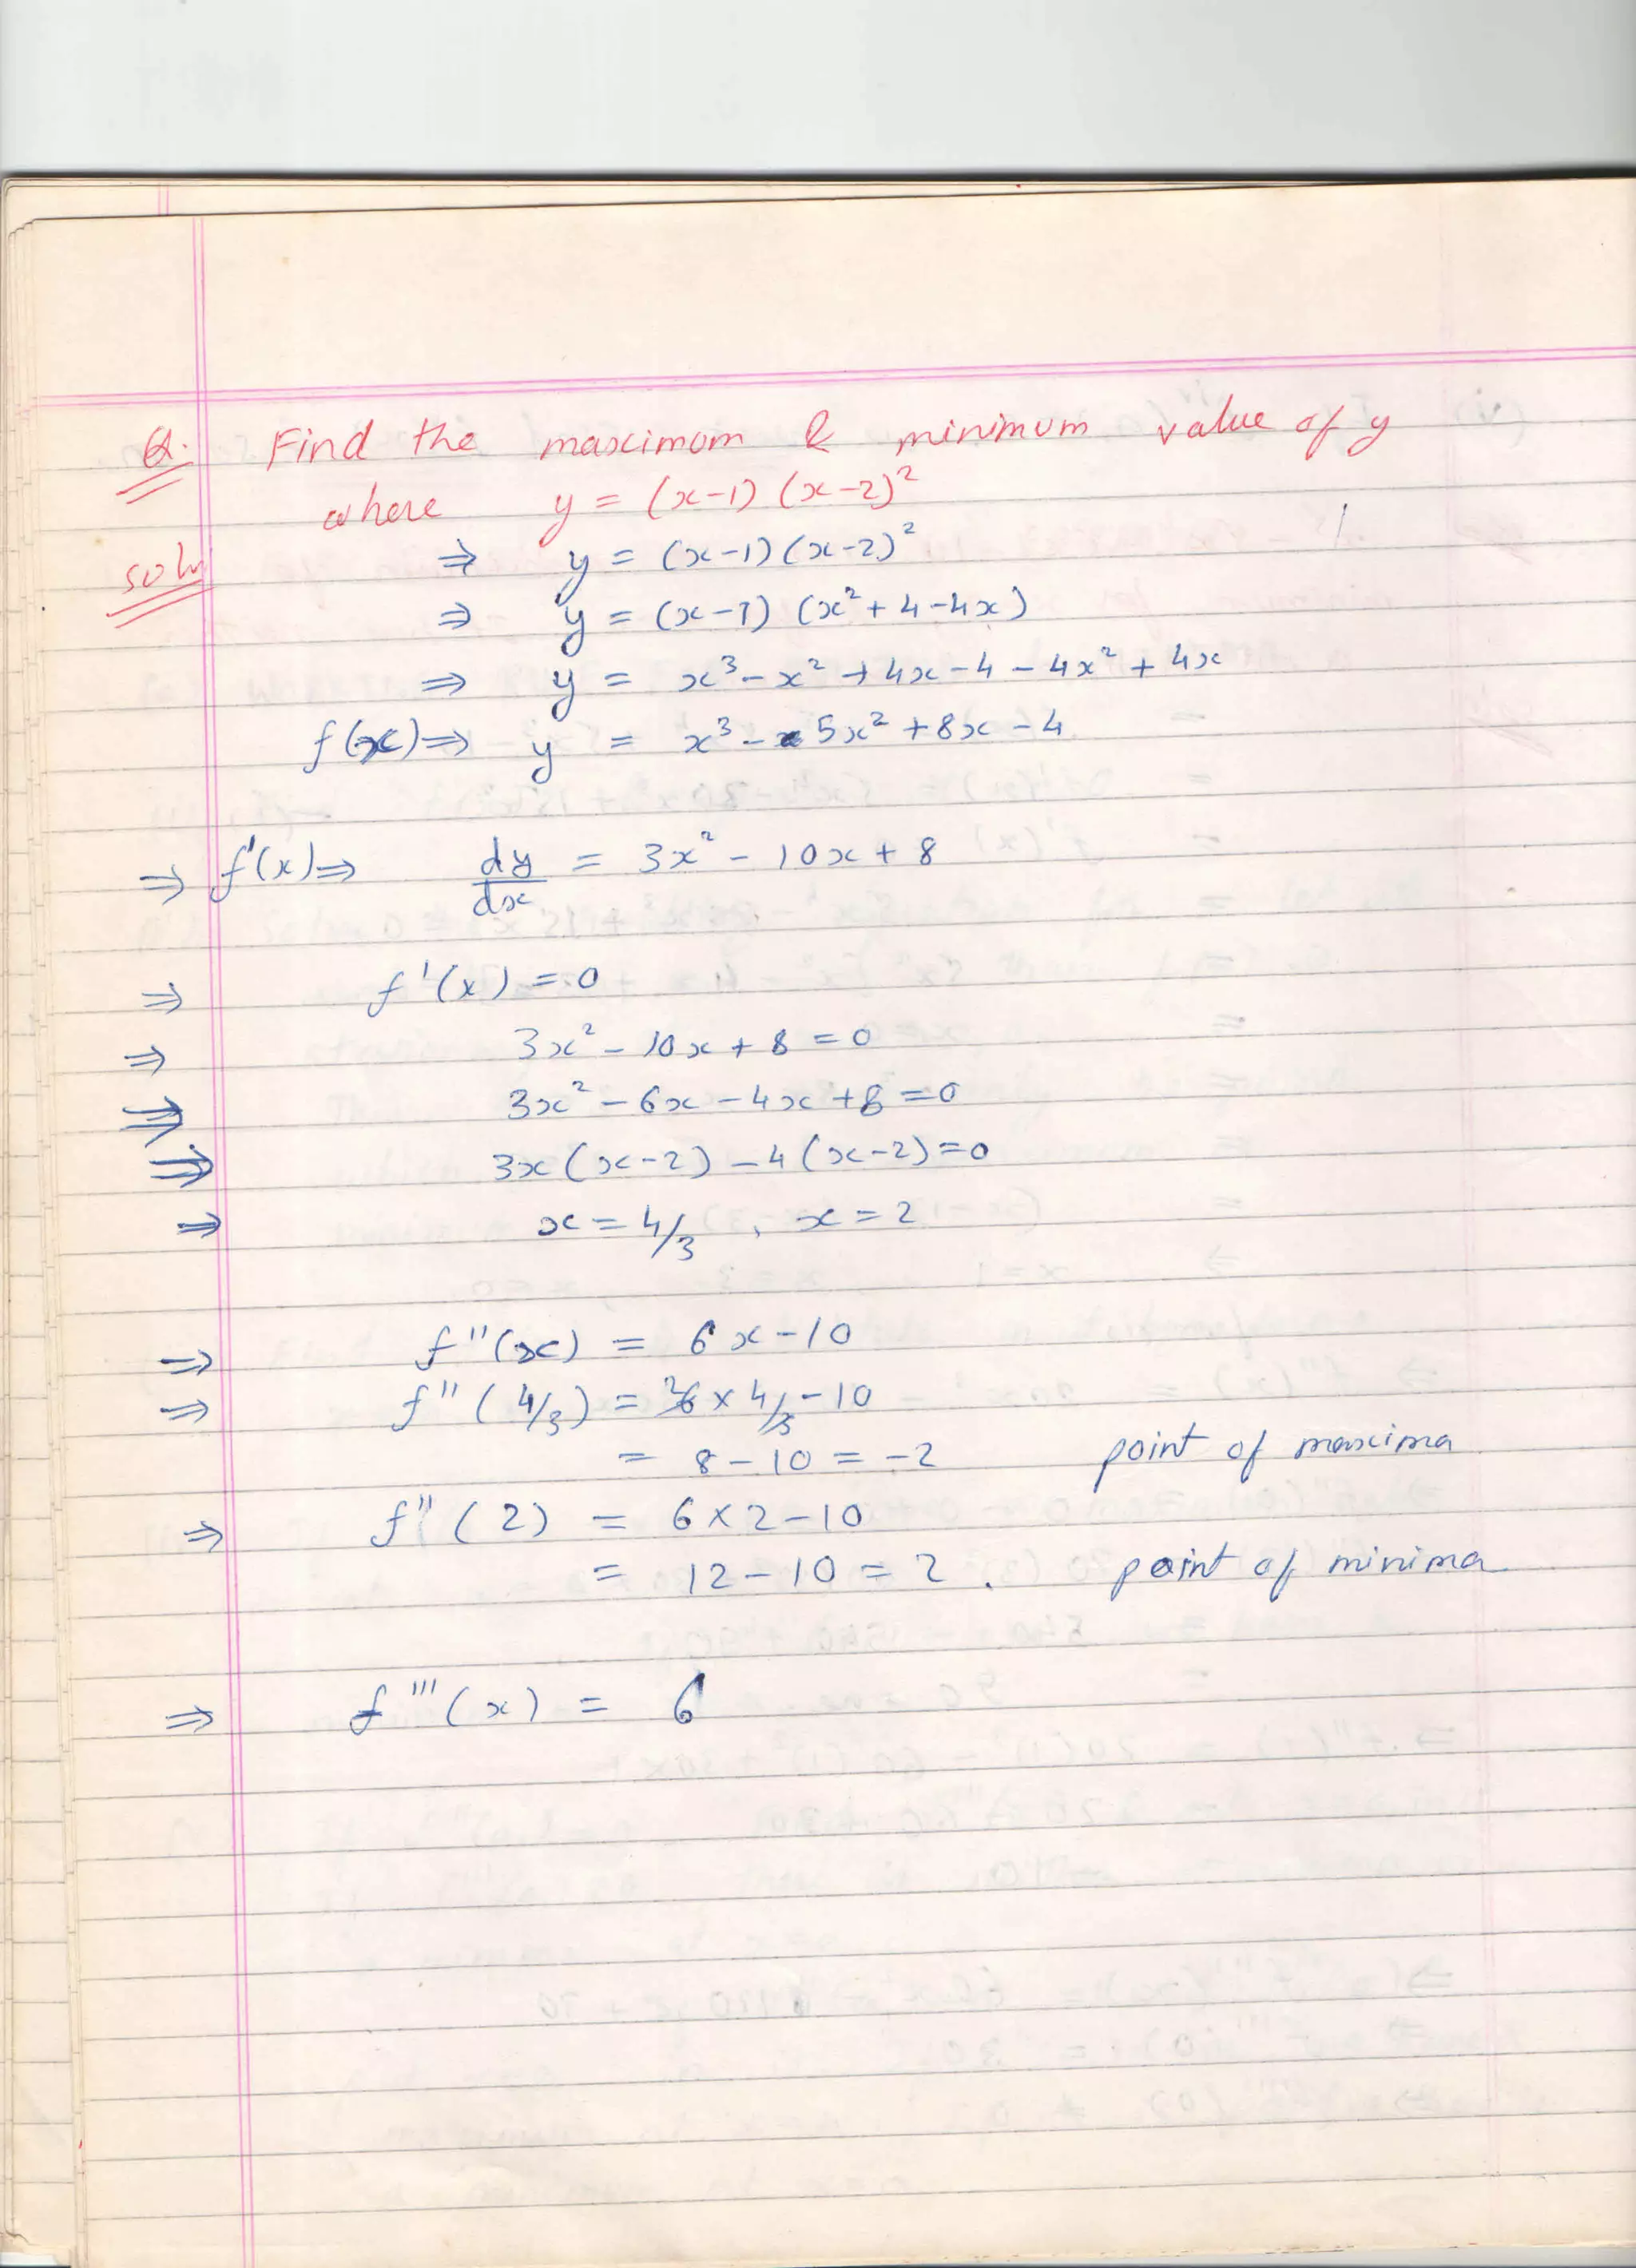 Q. Find the maximum & minimum value of y
where y = (x-1) (x-2)²
soln ⇒ y = (x-1)(x-2)²
⇒ y = (x-1) (x²+4-4x)
⇒ y = x³-x²+4x-4-4x²+4x
f(x)⇒ y = x³-5x²+8x-4
⇒ f'(x)⇒ dy/dx = 3x²-10x+8
⇒ f'(x) = 0
⇒ 3x²-10x+8=0
⇒ 3x²-6x-4x+8=0
⇒ 3x(x-2)-4(x-2)=0
⇒ x=4/3, x=2
⇒ f''(x) = 6x-10
⇒ f''(4/3) = 6×4/3-10
= 8-10=-2 point of maxima
⇒ f''(2) = 6×2-10
= 12-10=2. point of minima
⇒ f'''(x) = 6